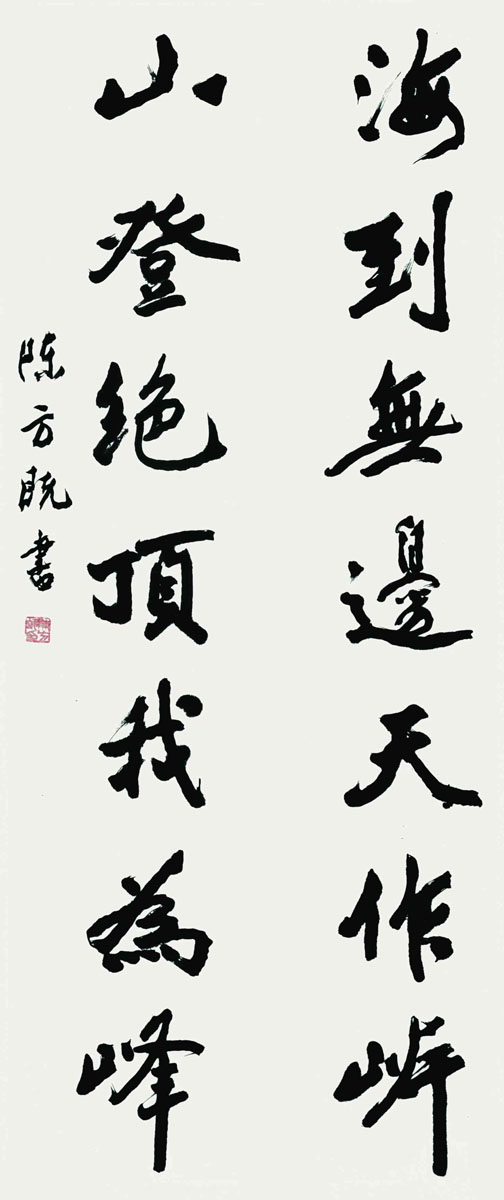 海到無邊天作岸
山登絶頂我為峰
陳方既書